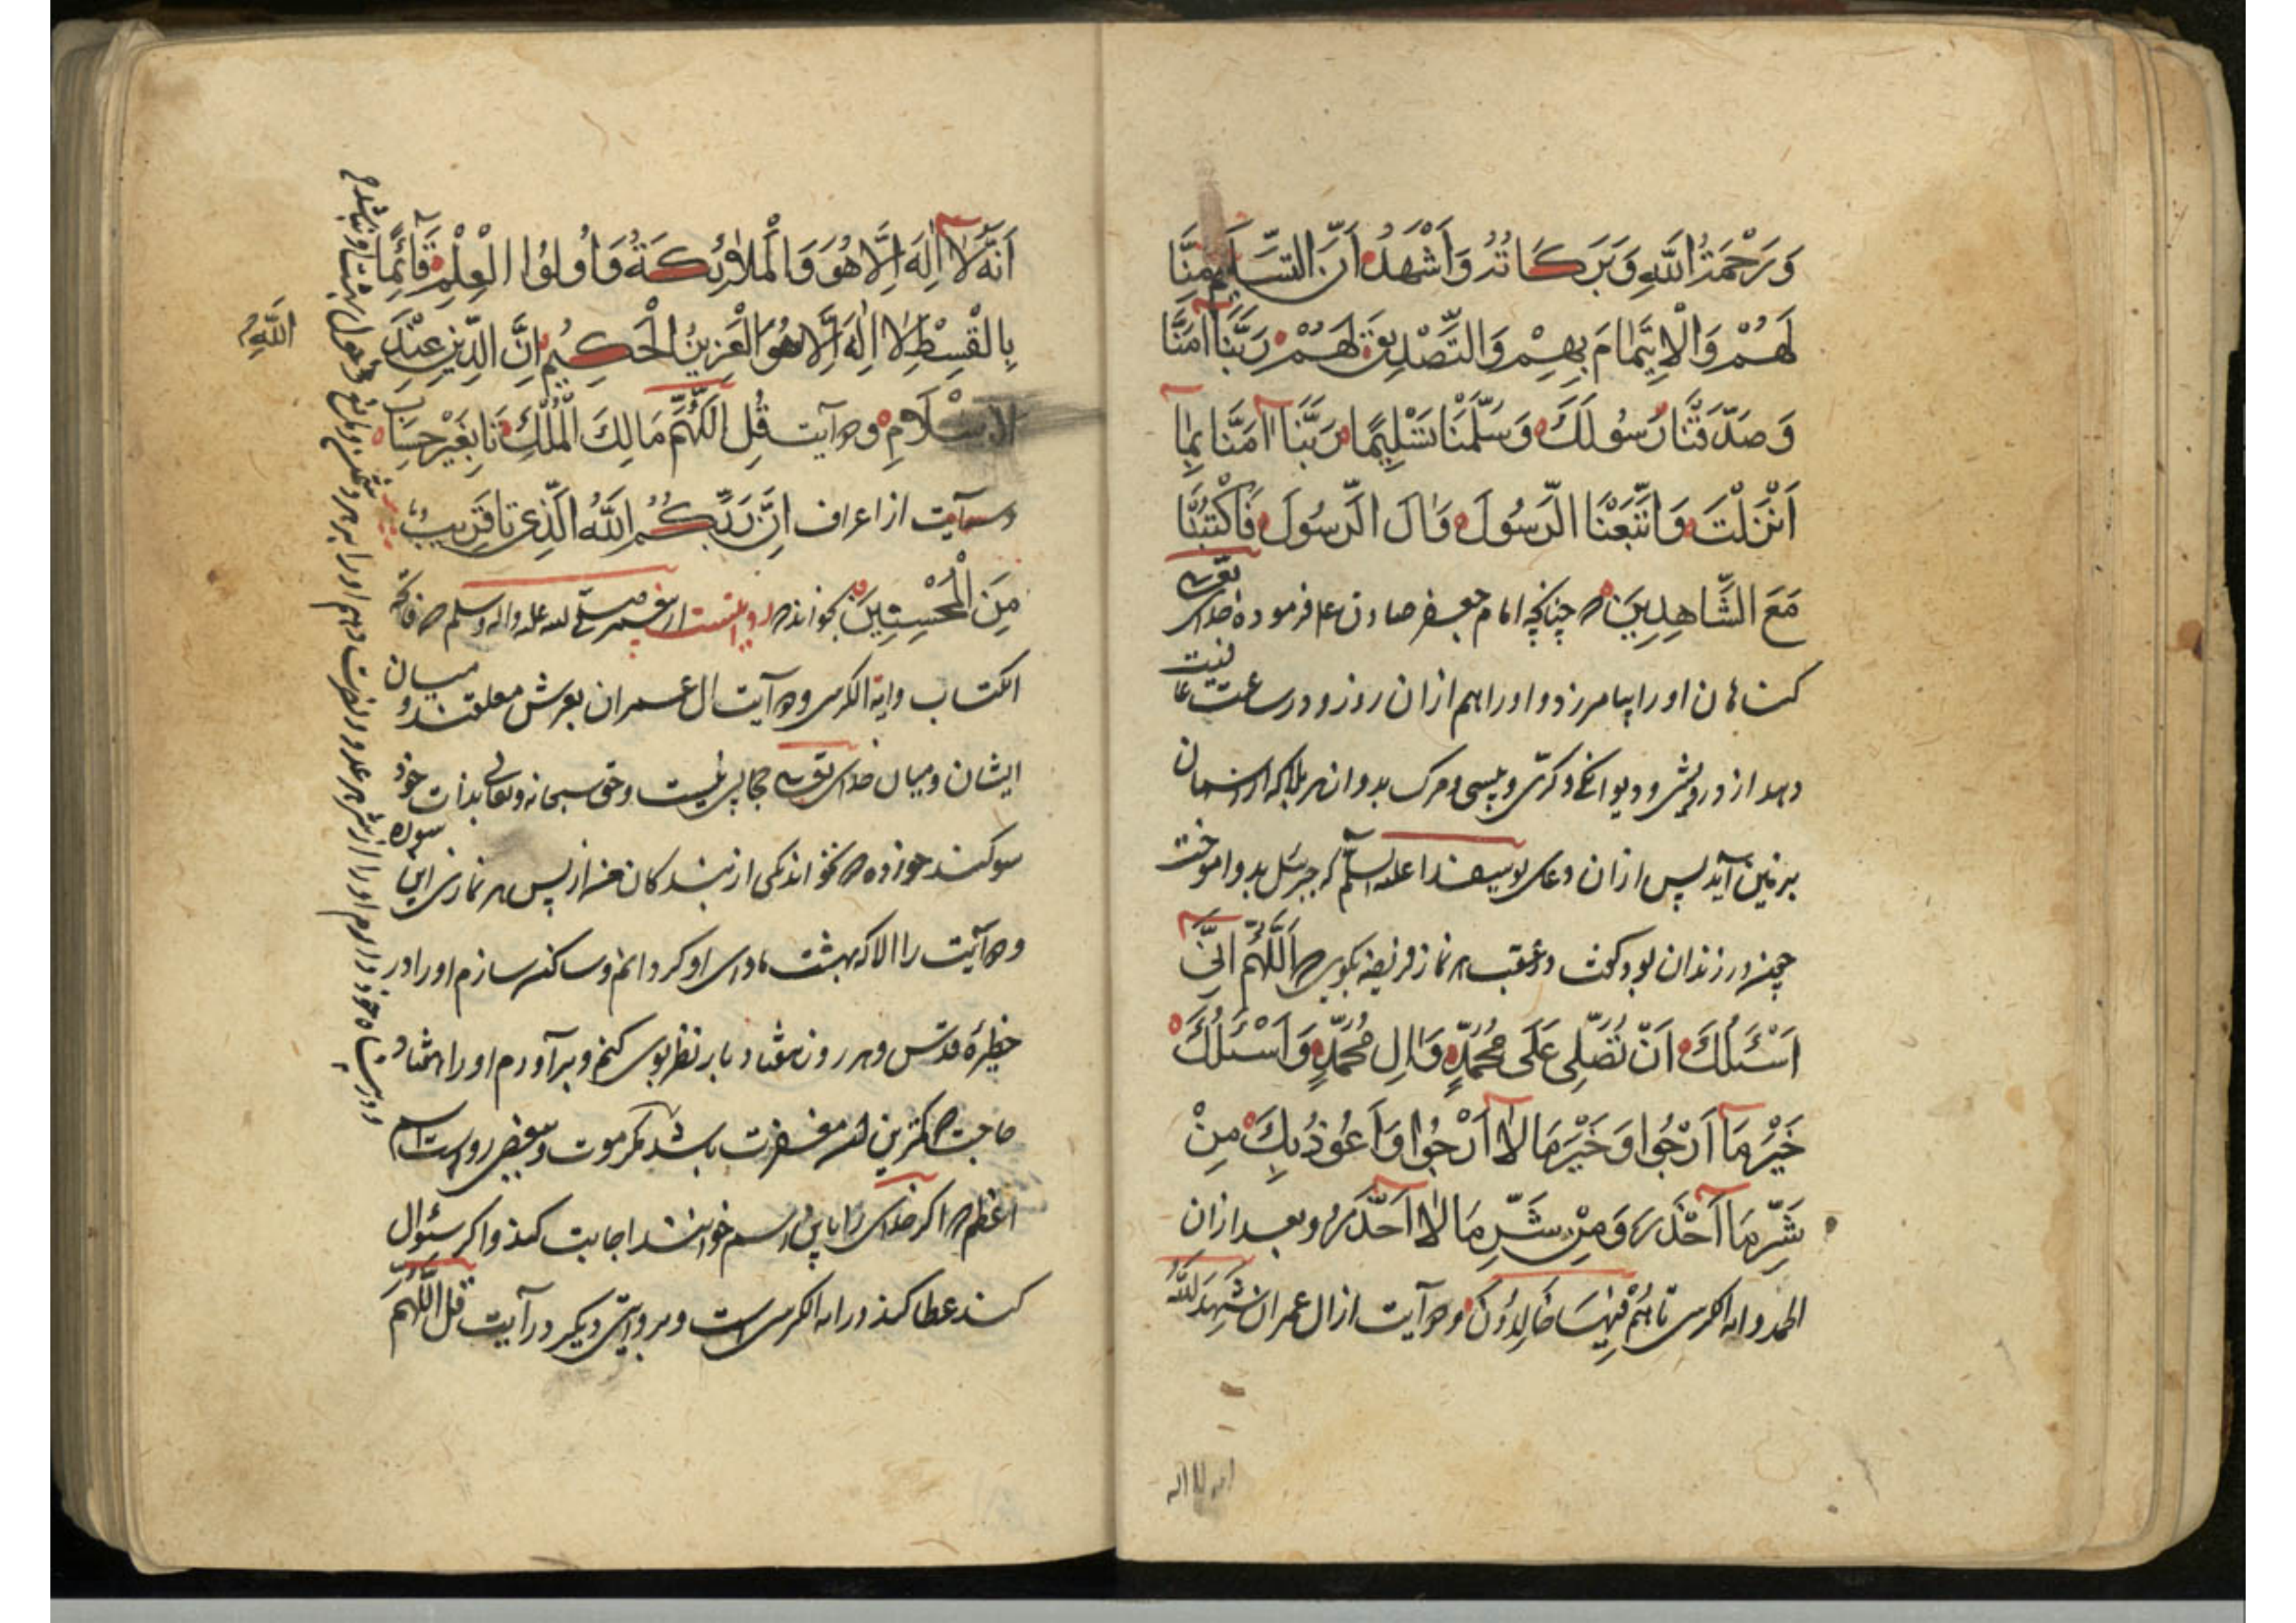 وَرَحْمَةُ اللّٰهِ وَبَرَكَاتُهُ وَاَشْهَدُ اَنَّ التَّسْلِيمَ مِنَّا
لَهُمْ وَالْاِيتِمٰامَ بِهِمْ وَالتَّصْدِيقَ لَهُمْ رَبَّنَا اٰمَنَّا
وَصَدَّقْنَا رَسُولَكَ وَسَلَّمْنَا تَسْلِيمًا رَبَّنَا اٰمَنَّا بِمٰا
اَنْزَلْتَ وَاتَّبَعْنَا الرَّسُولَ وَاٰلَ الرَّسُولَ فَاكْتُبْنَا
مَعَ الشَّاهِدِينَ چنانچه امام جعفر صادق ع فرموده خدای تعالی
کناهان او را بیامرزد و او را هم از ان روز و در ساعت عافیت
دهد از درویشی و دیوانکی و کری و پیسی و مرک بد و از هر بلا که از اسمان
بر زمین آید پس از ان دعای یوسف علیه السلم که جبرئیل بدو اموخت
چون در زندان بود کوش و در عقب هر نماز فریضه بکوید اَللّٰهُمَّ اِنِّي
اَسْئَلُكَ اَنْ تُصَلِّى عَلَى مُحَمَّدٍ وَاٰلِ مُحَمَّدٍ وَاَسْئَلُكَ
خَيْرَ مَا اَرْجُوا وَخَيْرَ مَا لاٰ اَرْجُوا وَاَعُوذُ بِكَ مِنْ
شَرِّ مَا اَحْذَرُ وَمِنْ شَرِّ مَا لاٰ اَحْذَرُ و بعد از ان
الحمد و ایه الکرسی تا هُمْ فِيْهَا خَالِدُوْنَ و دو آیت از ال عمران شَهِدَ اللّٰهُ
انه لا اله
اَنَّهُ لَا اِلٰهَ اِلَّا هُوَ وَالْمَلاٰئِكَةُ وَاُولُوا الْعِلْمِ قَآئِمًا
بِالْقِسْطِ لاٰ اِلٰهَ اِلَّا هُوَ الْعَزِيزُ الْحَكِيمُ اِنَّ الدِّينَ عِنْدَ
اللّٰهِ
الاِسْلَامِ و دو آیت قُلِ اللّٰهُمَّ مَالِكَ الْمُلْكِ تا بِغَيْرِ حِسَابٍ
و سه آیت از اعراف اِنَّ رَبَّكُمُ اللّٰهُ الَّذِى تا قَرِيبٌ
مِنَ الْمُحْسِنِينَ بخواند روایتست از پیغمبر صلی الله علیه واله وسلم فاتحه
الکتاب وایة الکرسی و دو آیت ال عمران بعرش معلقند و میان
ایشان و میان خدای تعالی حجابی نیست و حق سبحانه و تعالی بذات خود
سوکند خورده که نخواند یکی از بندکان من از پس هر نمازی این سوره
و دو آیت را الا که بهشت ماوای او کردانم و ساکن سازم او را در
خطیرهٔ قدس و هر روز هفتاد بار نظر بوی کنم و برآورم او را هفتاد
حاجت کمترین ان مغفرت باشد مکر موت و بعضی روایت اسم
اعظم اکر خدای را باین اسم خوانند اجابت کند و اکر سئوال
کنند عطا کند در ایه الکرسی است و بروایتی دیکر در آیت قُلِ اللّٰهُمَّ